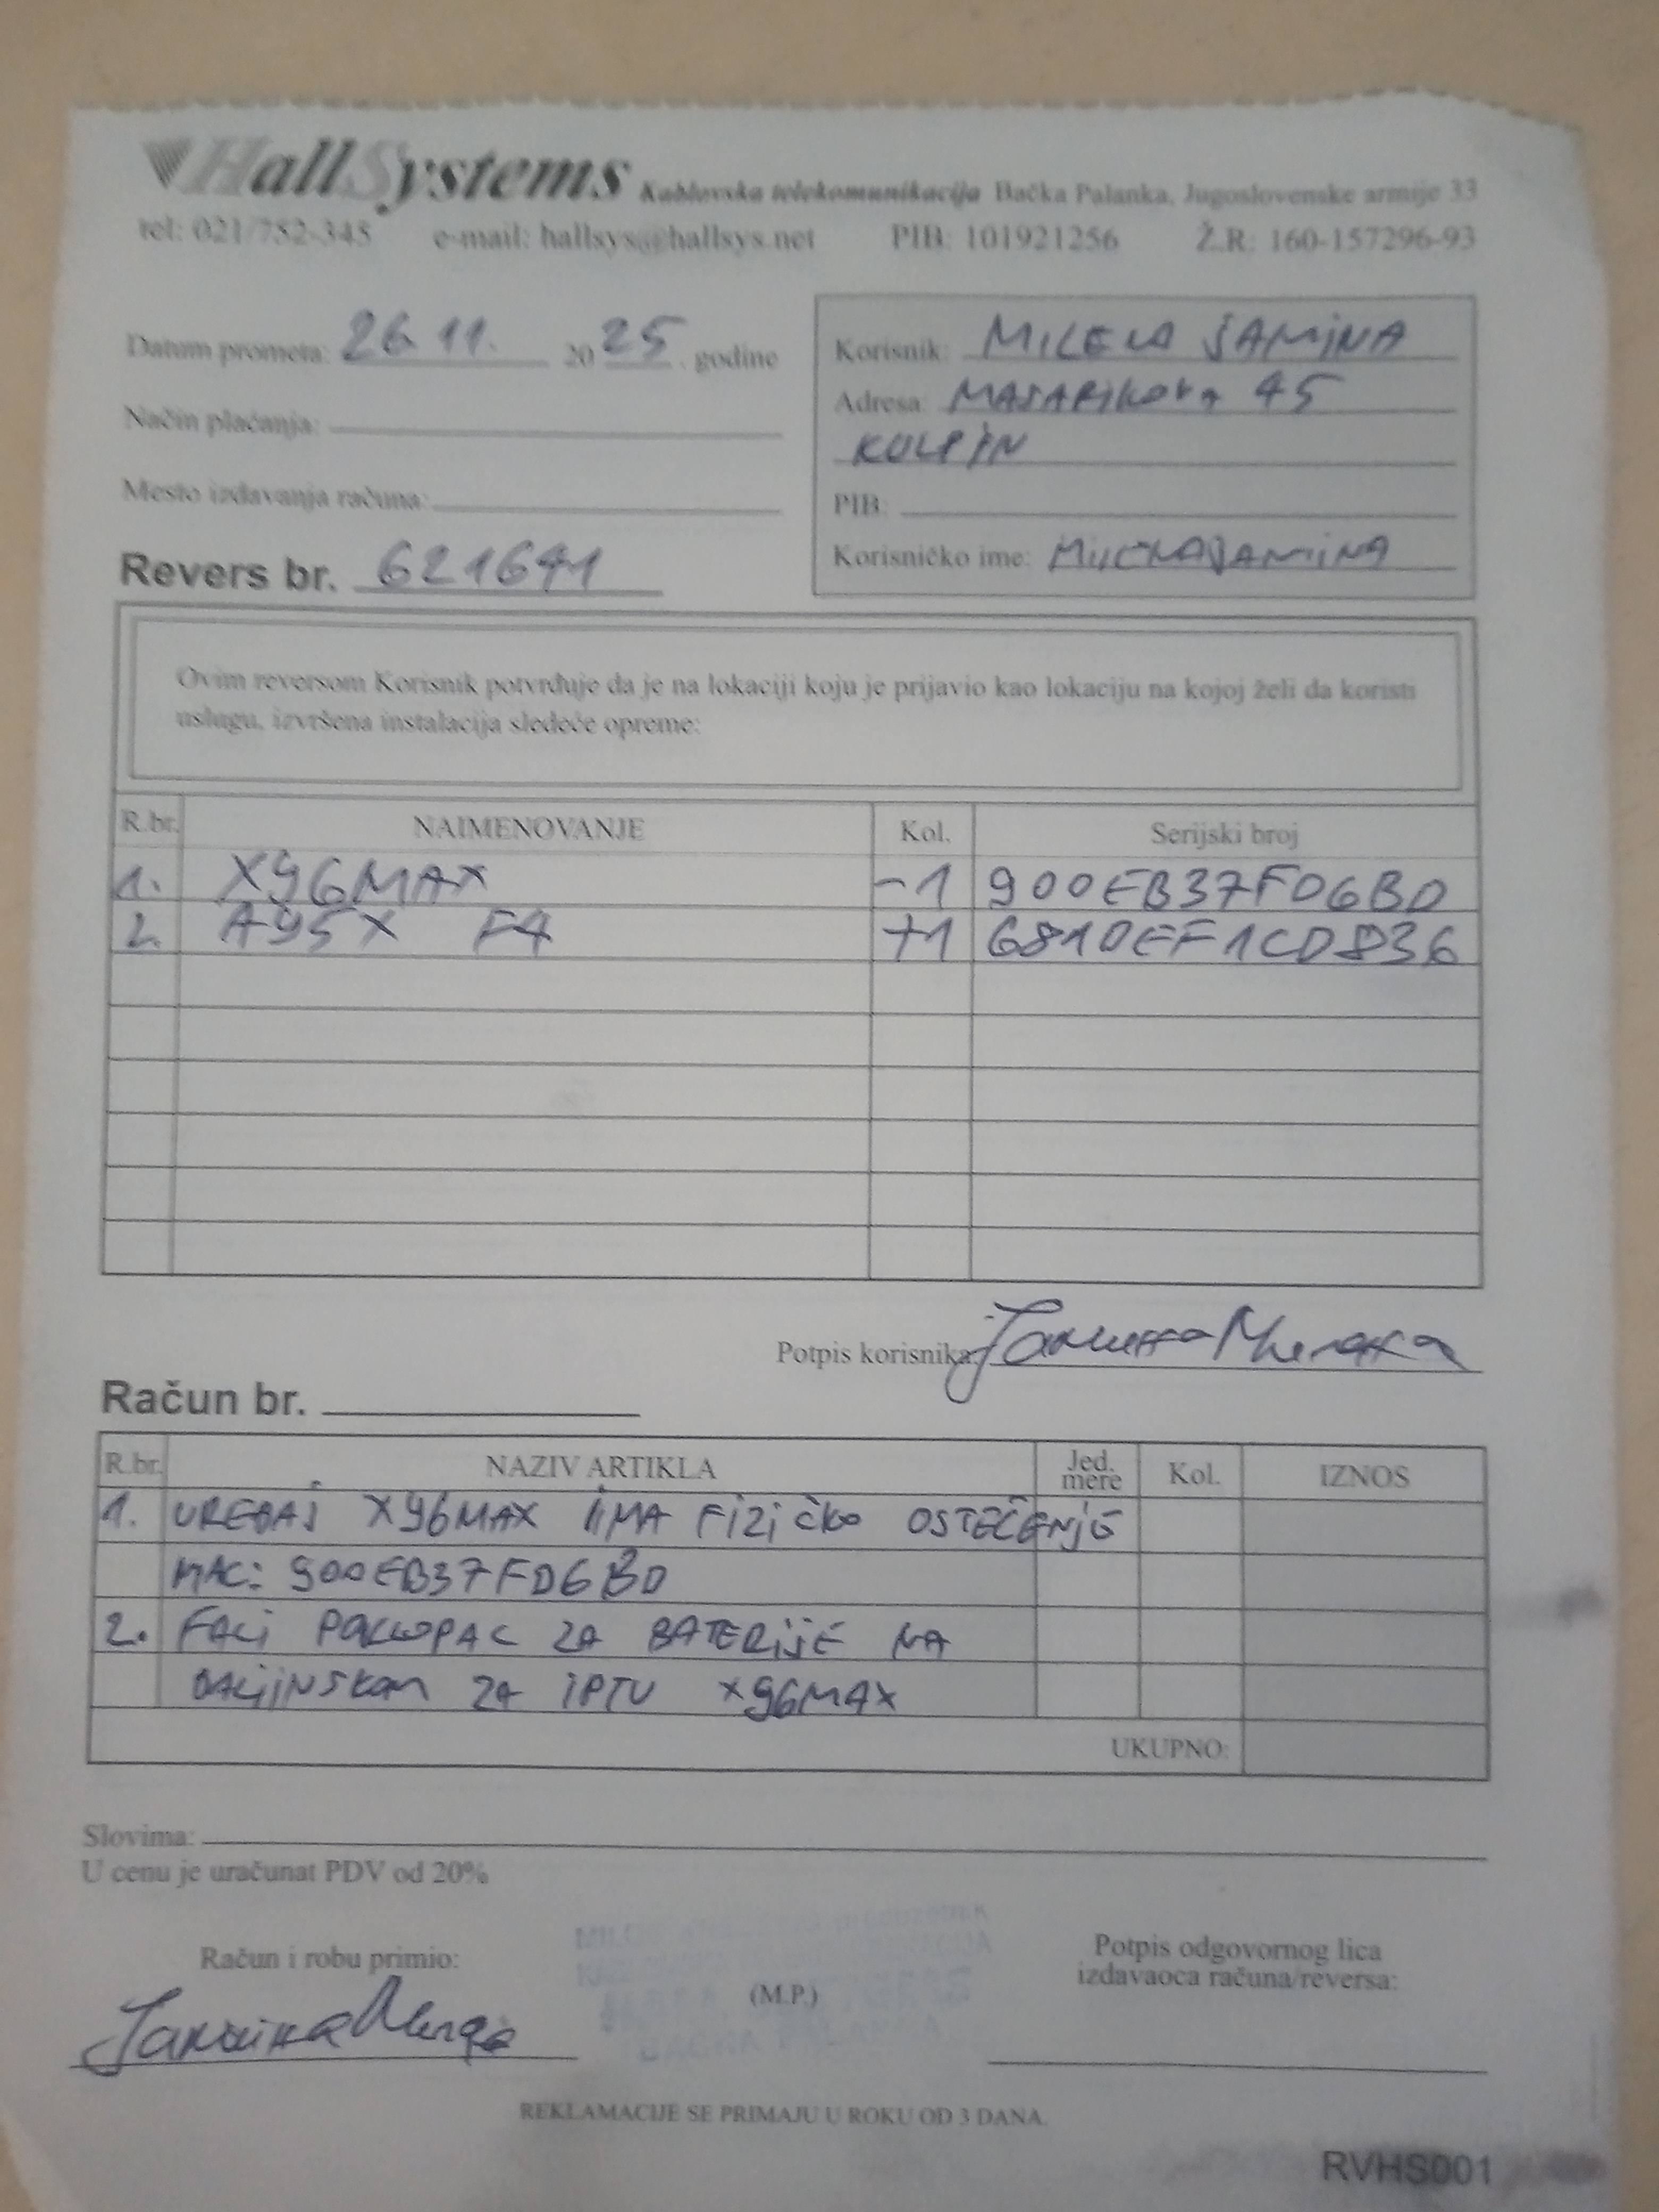 HallSystems Kablovska telekomunikacija Bačka Palanka, Jugoslovenske armije 33
tel: 021/752-345 e-mail: hallsys@hallsys.net PIB: 101921256 Ž.R: 160-157296-93
Datum prometa: 26 11. 20 25. godine
Način plaćanja:
Mesto izdavanja računa:
Revers br. 621641
Korisnik: MILENA JAMINA
Adresa: MASARIKOVA 45
KULPIN
PIB:
Korisničko ime: MILENAJAMINA
Ovim reversom Korisnik potvrđuje da je na lokaciji koju je prijavio kao lokaciju na kojoj želi da koristi
uslugu, izvršena instalacija sledeće opreme:
R.br. NAIMENOVANJE Kol. Serijski broj
1. X96MAX -1 900EB37FD6BD
2. A95X F4 +1 6810EF1CD836
Potpis korisnika:
Račun br.
R.br. NAZIV ARTIKLA Jed. mere Kol. IZNOS
1. UREĐAJ X96MAX IMA FIZIČKO OSTEĆENJE
MAC: 900EB37FD6BD
2. FALI POKLOPAC ZA BATERIJE NA
DALJINSKOM ZA IPTV X96MAX
UKUPNO:
Slovima:
U cenu je uračunat PDV od 20%
Račun i robu primio:
(M.P.)
Potpis odgovornog lica
izdavaoca računa/reversa:
REKLAMACIJE SE PRIMAJU U ROKU OD 3 DANA.
RVHS001